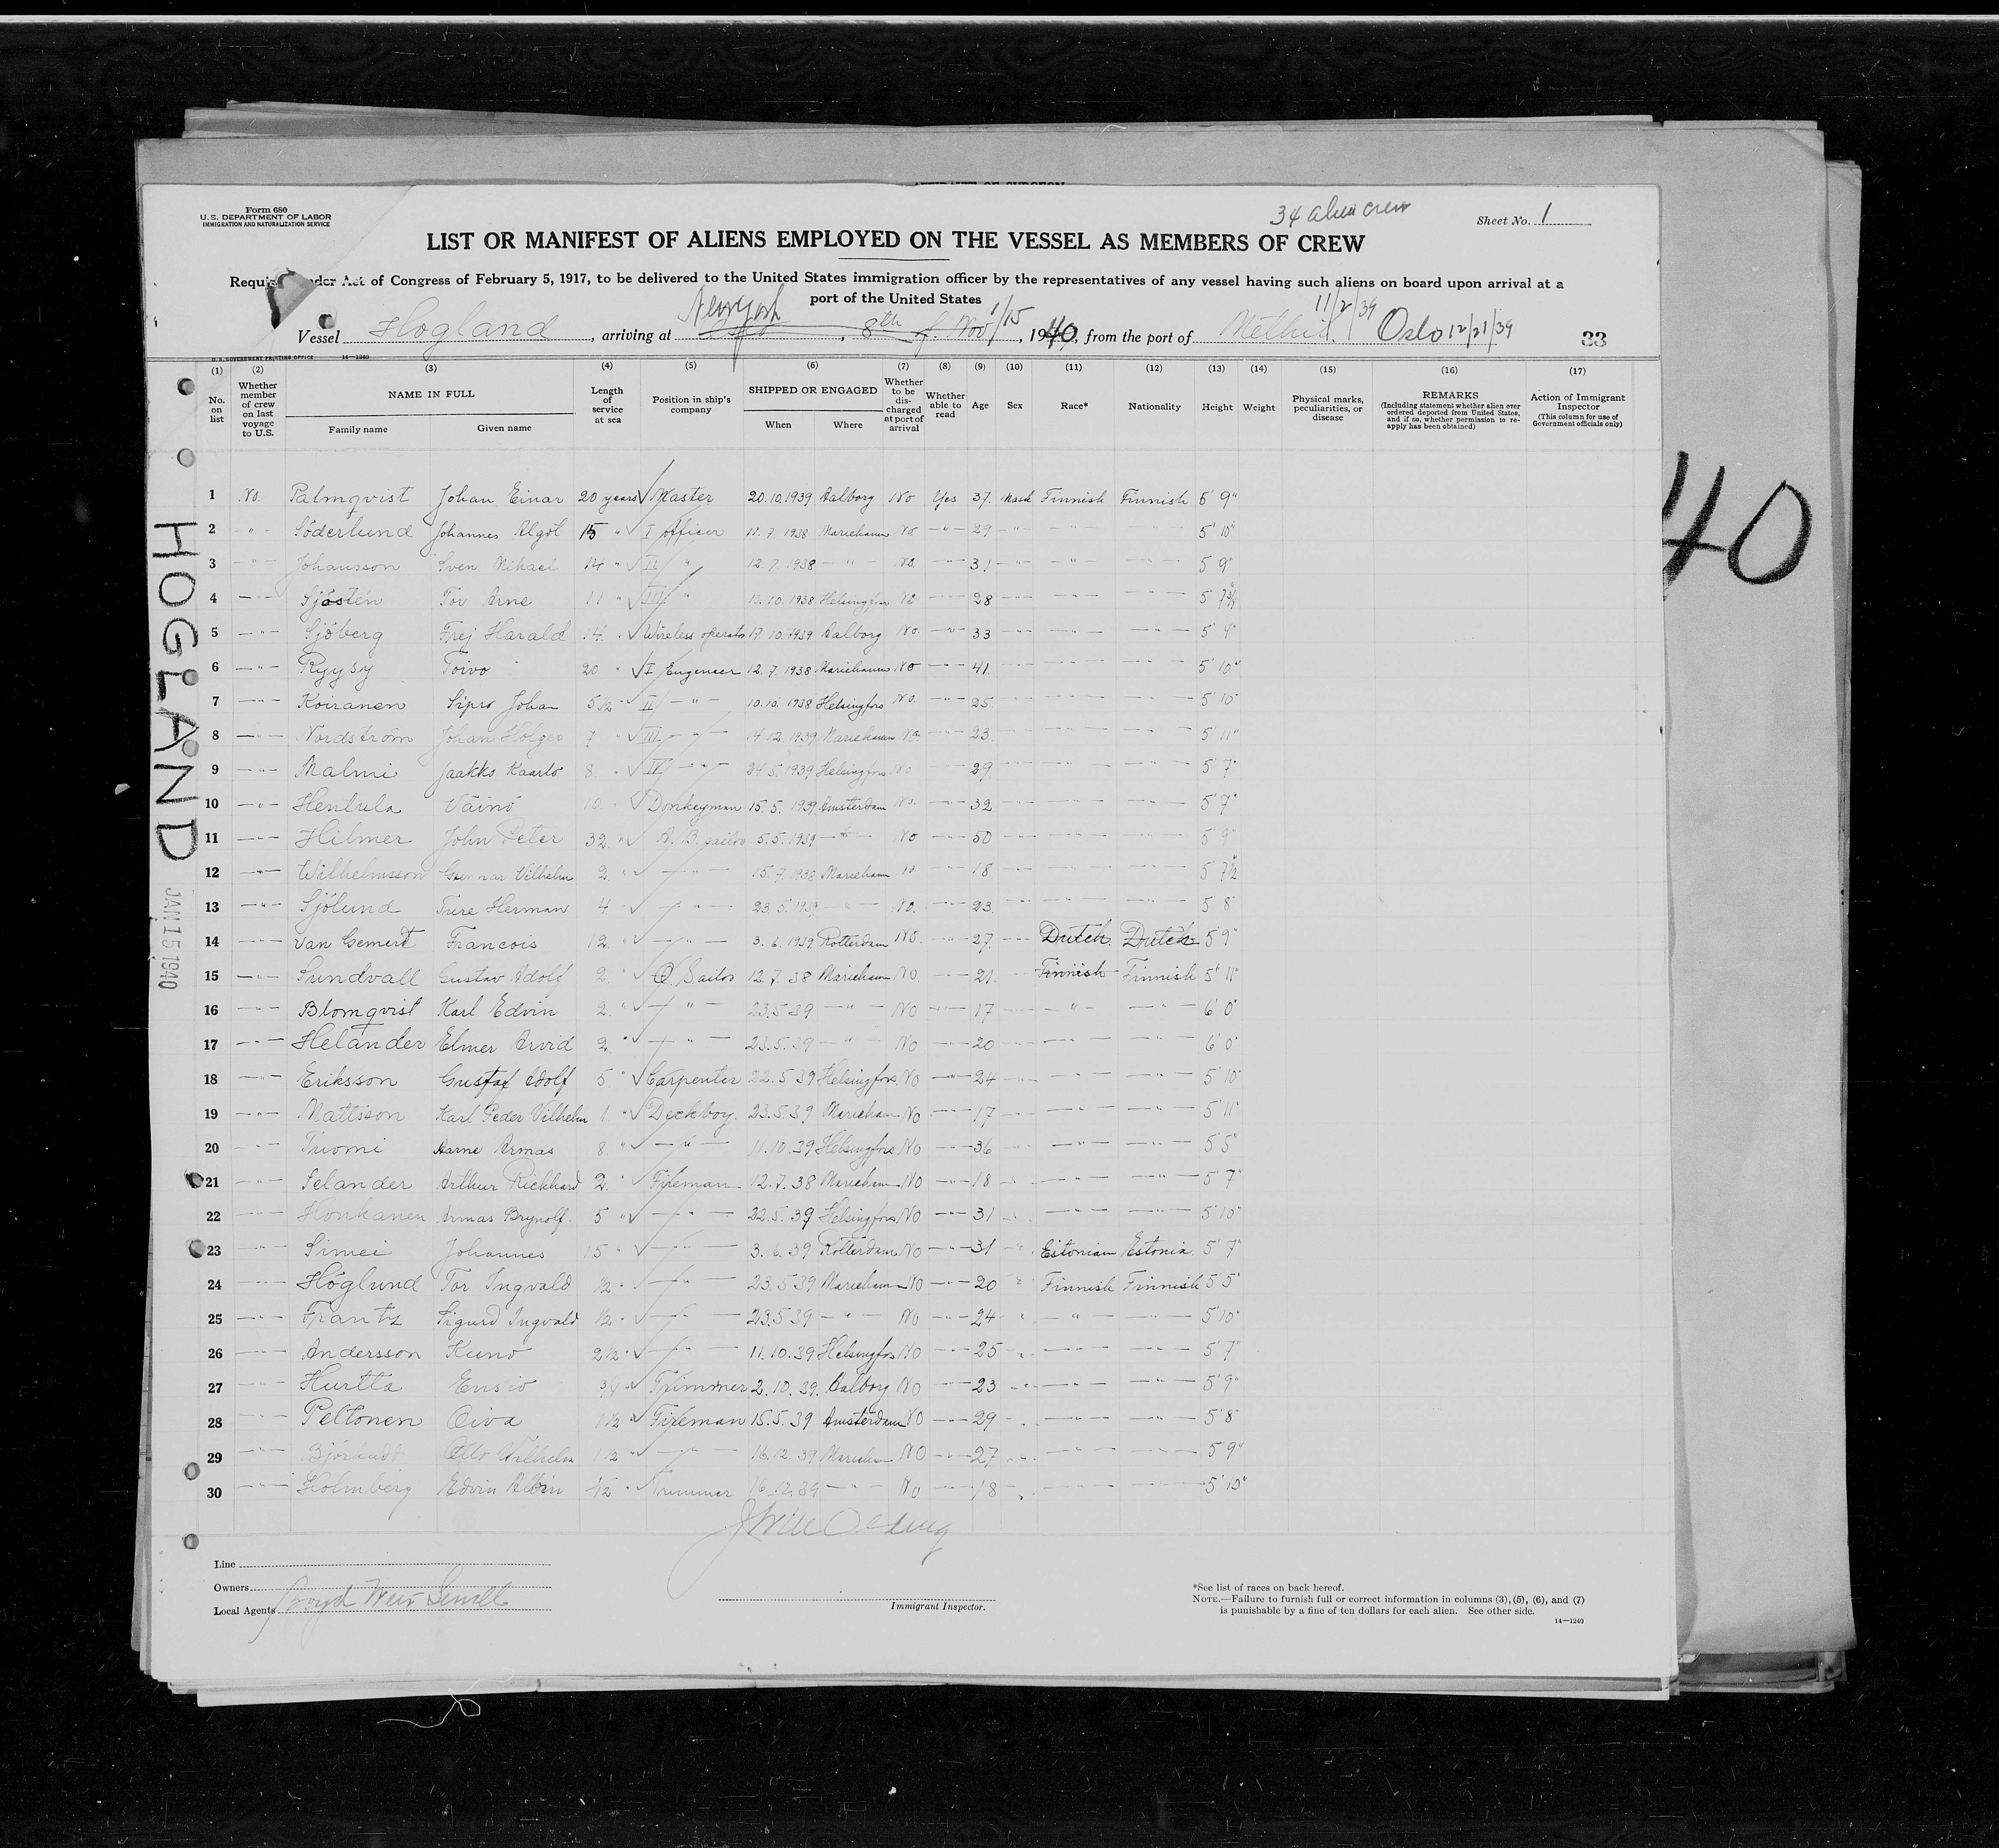 Form 680
U. S. DEPARTMENT OF LABOR
IMMIGRATION AND NATURALIZATION SERVICE
34 alien crew
Sheet No. 1
LIST OR MANIFEST OF ALIENS EMPLOYED ON THE VESSEL AS MEMBERS OF CREW
Required under Act of Congress of February 5, 1917, to be delivered to the United States immigration officer by the representatives of any vessel having such aliens on board upon arrival at a
port of the United States
Vessel Hogland, arriving at New York, 8th of Nov 1/15, 1940, from the port of Methil. 11/2/39 Oslo 12/21/39 33
U. S. GOVERNMENT PRINTING OFFICE 14—1240
(1) (2) (3) (4) (5) (6) (7) (8) (9) (10) (11) (12) (13) (14) (15) (16) (17)
No. on list
Whether member of crew on last voyage to U.S.
NAME IN FULL
Family name Given name
Length of service at sea
Position in ship's company
SHIPPED OR ENGAGED
When Where
Whether to be discharged at port of arrival
Whether able to read
Age Sex Race* Nationality Height Weight
Physical marks, peculiarities, or disease
REMARKS
(Including statement whether alien ever ordered deported from United States, and if so, whether permission to reapply has been obtained)
Action of Immigrant Inspector
(This column for use of Government officials only)
1 No. Palmqvist Johan Einar 20 years Master 20.10.1939 Aalborg No Yes 37. Male Finnish Finnish 5' 9"
2 " Söderlund Johannes Algot 15 " I Officer 11.7.1938 Mariehamn No " 29 " " " 5' 10"
3 " Johansson Sven Mikael 14 " II " 12.7.1938 " No. " 31 " " " 5' 9"
4 " Sjösten Tor Arne 11 " III " 13.10.1938 Helsingfors No " 28 " " " 5' 7 3/4"
5 " Sjöberg Frej Harald 14. " Wireless operator 17.10.1939 Aalborg No. " 33 " " " 5' 4"
6 " Ryysy Toivo 20 " I Engeneer 12.7.1938 Mariehamn No " 41. " " " 5' 10"
7 " Koiranen Sipro Johan 5 1/2 " II " 10.10.1938 Helsingfors No. " 25 " " " 5' 10"
8 " Nordström Johan Holger 7 " III " 14.12.1939 Mariehamn No. " 23 " " " 5' 11"
9 " Malmi Jaakko Kaarlo 8. " IV " 24.5.1939 Helsingfors No " 29 " " " 5' 7"
10 " Hentula Väinö 10. " Donkeyman 15.5.1939 Amsterdam No. " 32 " " " 5' 7"
11 " Hilmer John Peter 32. " A. B. sailor 5.5.1939 " No " 50 " " " 5' 9"
12 " Wilhelmsson Gunnar Vilhelm 2. " " 15.7.1938 Marieham " 18 " " " 5' 7 1/2"
13 " Sjölund Ture Herman 4. " " 23.5.1939 " No. " 23. " " " 5' 8"
14 " Van Gemert Francois 12. " " 3.6.1939 Rotterdam No. " 27 " Dutch. Dutch 5' 9"
15 " Sundvall Gustav Adolf 2. " O. Sailor 12.7.38 Marieham No. " 21. " Finnish Finnish 5' 11"
16 " Blomqvist Karl Edvin 2. " " 23.5.39 " No " 17 " " 6' 0"
17 " Helander Elmer Arvid 2 " " 23.5.39 " No " 20 " " 6' 0"
18 " Eriksson Gustaf Adolf 5 " Carpenter 22.5.39 Helsingfors No " 24 " " " 5' 10"
19 " Mattsson Karl Peder Vilhelm 1 " Deckboy. 23.5.39 Marieham No " 17 " " " 5' 11"
20 " Tuomi Aarne Armas 8. " " 11.10.39 Helsingfors No " 36 " " " 5' 5"
21 " Selander Arthur Rickhard 2. " Fireman 12.7.38 Marieham No " 18 " " " 5' 7"
22 " Honkanen Armas Brynolf. 5 " " 22.5.39 Helsingfors No " 31 " " " 5' 10"
23 " Simei Johannes 15 " " 3.6.39 Rotterdam No " 31 " Estonian Estonia. 5' 7"
24 " Höglund Tor Ingvald 1/2 " " 23.5.39 Marieham No " 20 " Finnish Finnish 5' 5"
25 " Frantz Sigurd Ingvald 1/2 " " 23.5.39 " No " 24 " " " 5' 10"
26 " Andersson Kuno 2 1/2 " " 11.10.39 Helsingfors No " 25 " " " 5' 7"
27 " Hurtta Ensio 3/4 " Trimmer 2.10.39. Aalborg No " 23 " " " 5' 9"
28 " Peltonen Oiva 1 1/2 " Fireman 15.5.39 Amsterdam No " 29 " " " 5' 8"
29 " Otto Vilhelm 1 1/2 " " 16.12.39 Marieham No " 27 " " " 5' 9"
30 " Holmberg Edvin Albin 1/2 " Trimmer 16.12.39 " No " 18 " " " 5' 10"
Line
Owners
Local Agents Boyd Weir Sewell
Immigrant Inspector.
*See list of races on back hereof.
NOTE.—Failure to furnish full or correct information in columns (3), (5), (6), and (7)
is punishable by a fine of ten dollars for each alien. See other side.
14—1240
HOGLAND
JAN 15 1940
40